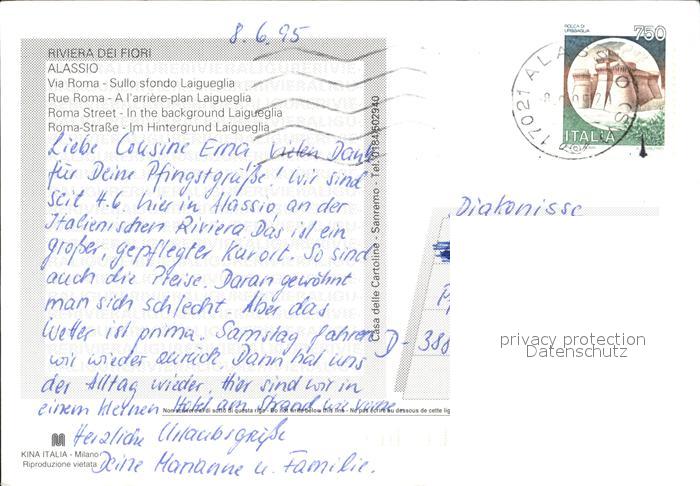 8.6.95
RIVIERA DEI FIORI
ALASSIO
Via Roma - Sullo sfondo Laigueglia
Rue Roma - A l'arrière-plan Laigueglia
Roma Street - In the background Laigueglia
Roma-Straße - Im Hintergrund Laigueglia
Liebe Cousine Erna, vielen Dank
für Deine Pfingstgrüße! Wir sind
seit 4.6. hier in Alassio, an der
Italienischen Riviera. Das ist ein
großer, gepflegter Kurort. So sind
auch die Preise. Daran gewöhnt
man sich schlecht. Aber das
Wetter ist prima. Samstag fahren
wir wieder zurück. Dann hat uns
der Alltag wieder. Hier sind wir in
einem kleinen Hotel am Strand
Herzliche Urlaubsgrüße
Deine Marianne u. Familie.
KINA ITALIA - Milano
Riproduzione vietata
Casa delle Cartoline - Sanremo - Tel. 0184/502940
Non scrivere al di sotto di questa riga - Do not write below this line - Ne pas écrire au dessous de cette lig
ROCCA DI
URBISAGLIA
750
ITALIA
17021 ALASSIO (SV)
Diakonisse
D-388
privacy protection
Datenschutz